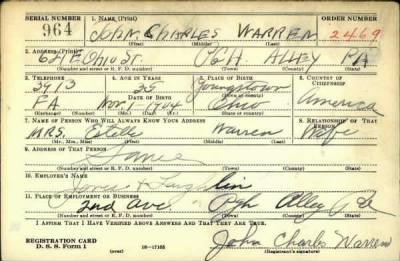 SERIAL NUMBER 1. NAME (Print) ORDER NUMBER
964 JOHN CHARLES WARREN 2469
(First) (Middle) (Last)
2. ADDRESS (Print)
621 E Ohio St. PGH. ALLEY PA
(Number and street or R. F. D. number) (Town) (County) (State)
3. TELEPHONE 4. AGE IN YEARS 5. PLACE OF BIRTH 6. COUNTRY OF CITIZENSHIP
3913 Youngstown
DATE OF BIRTH (Town or county)
FA Nov 1904 Ohio America
(Exchange) (Number) (Mo.) (Day) (Yr.) (State or country)
7. NAME OF PERSON WHO WILL ALWAYS KNOW YOUR ADDRESS 8. RELATIONSHIP OF THAT PERSON
MRS. Estelle Warren Wife
(Mr., Mrs., Miss) (First) (Middle) (Last)
9. ADDRESS OF THAT PERSON
Same
(Number and street or R. F. D. number) (Town) (County) (State)
10. EMPLOYER'S NAME
Jones & Laughlin
11. PLACE OF EMPLOYMENT OR BUSINESS
2nd Ave Pgh Alley Pa
(Number and street or R. F. D. number) (Town) (County) (State)
I AFFIRM THAT I HAVE VERIFIED ABOVE ANSWERS AND THAT THEY ARE TRUE.
REGISTRATION CARD John Charles Warren
D. S. S. Form 1 (over) 16-17105 (Registrant's signature)